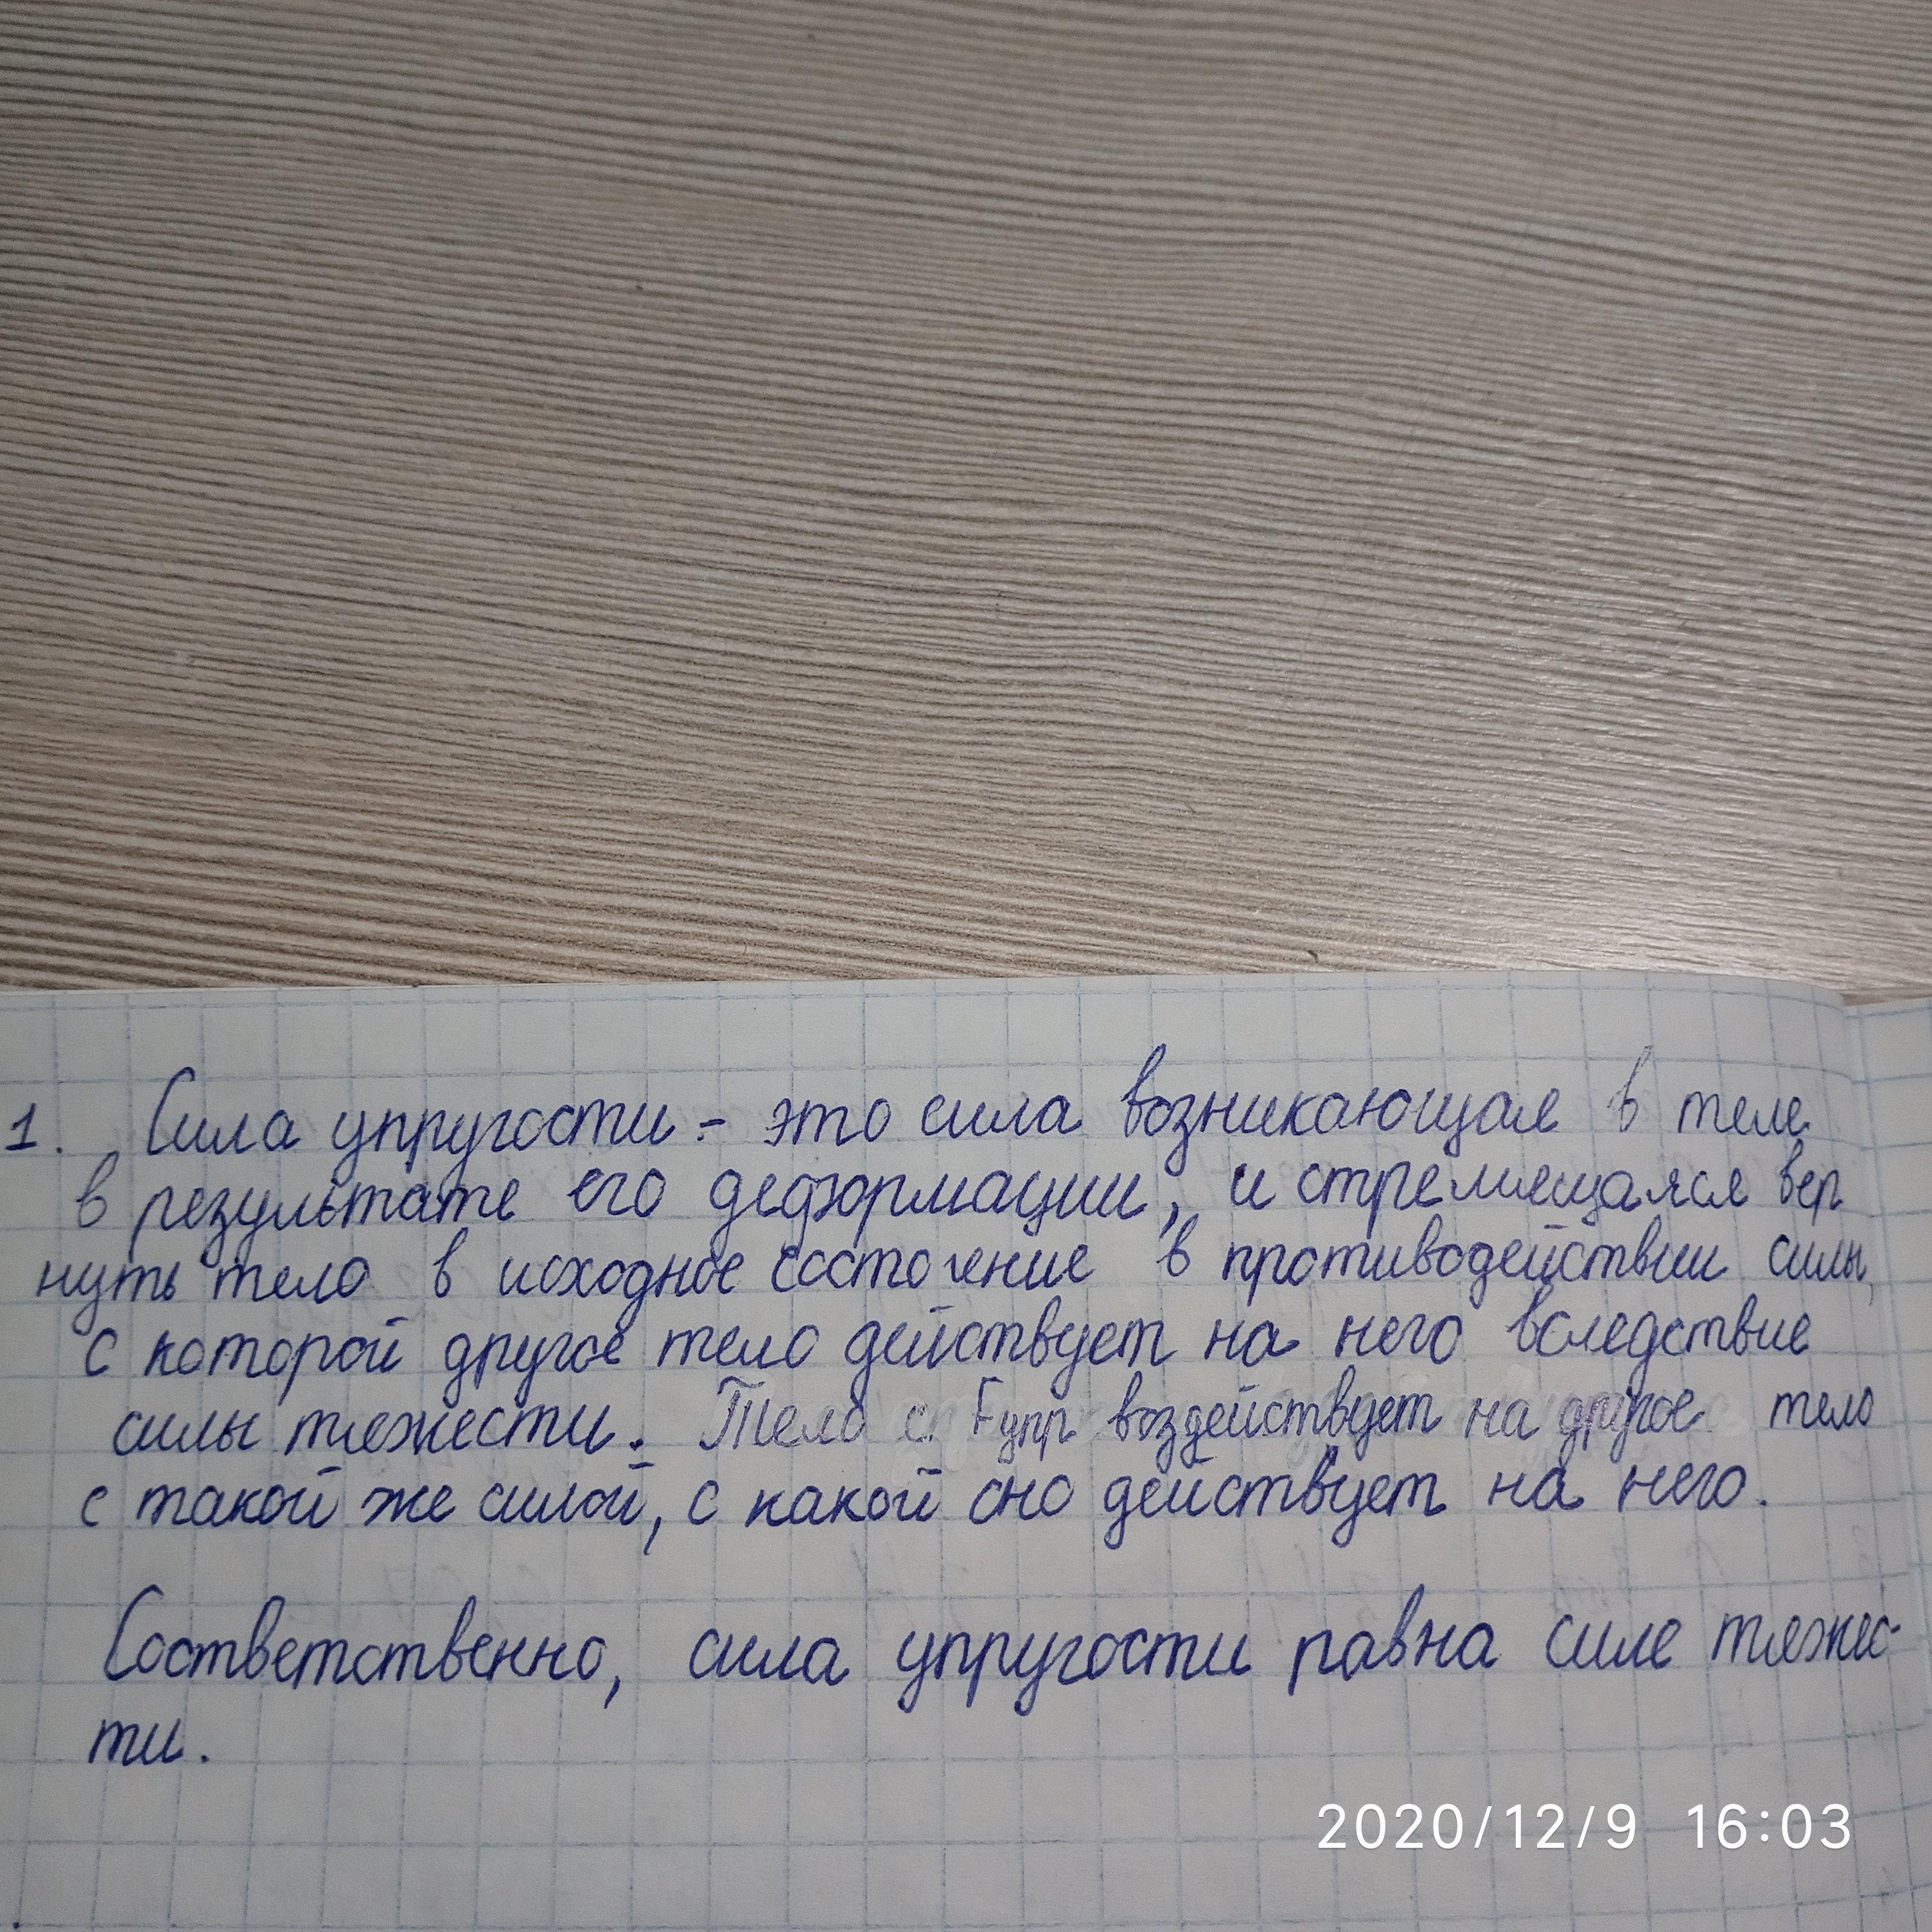 1. Сила упругости - это сила возникающая в теле
в результате его деформации, и стремящаяся вер
нуть тело в исходное состояние в противодействии силы,
с которой другое тело действует на него вследствие
силы тяжести. Тело с Fупр воздействует на другое тело
с такой же силой, с какой оно действует на него.
Соответственно, сила упругости равна силе тяжес-
ти.
2020/12/9 16:03